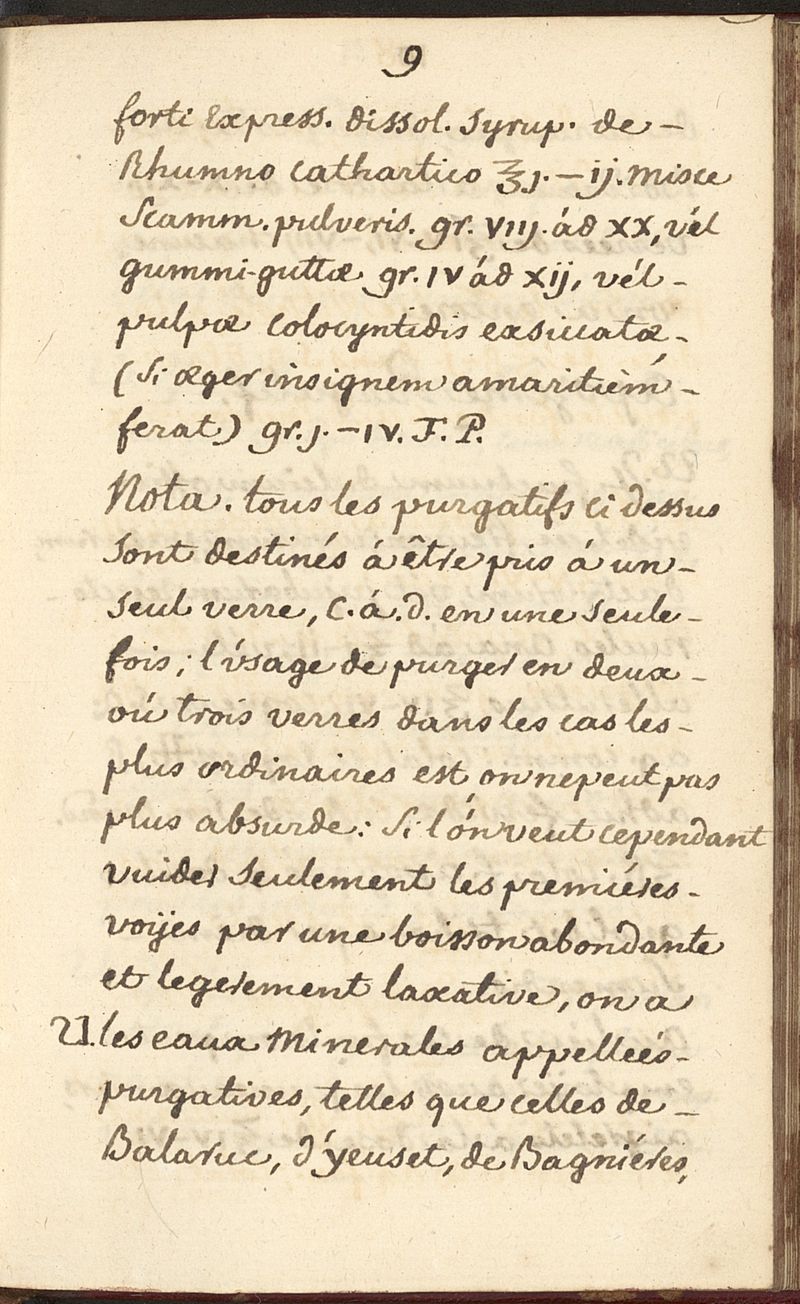 9
forti Express. dissol. syrup. de –
Rhumno cathartico ℥j. – ij. misce
Scamm. pulveris. gr. VIIJ. ád XX, vél
gummi-guttæ gr. IV ád XIJ, vél –
pulpæ colocyntidis exsiccatæ –
(Si æger insignem amaritiem –
ferat) gr. j. – IV. F. P.
Nota. tous les purgatifs ci dessus
sont destinés á être pris á un –
seul verre, C. á. d. en une seule –
fois; l'úsage de purger en deux –
oú trois verres dans les cas les –
plus ordinaires est, on ne peut pas
plus absurde: Si l'ón veut cependant
vuider seulement les premiéres –
voÿes par une boisson abondante
et legerement laxative, on a
21. les eaux Minerales appelleés –
purgatives, telles que celles de –
Balaruc, d'yeuset, de Bagniéres,